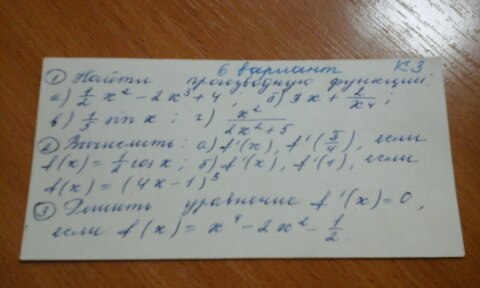 6 вариант К3
① Найти производную функции:
а) 1/2 x² - 2x³ + 4; б) 3x + 2/x⁴;
в) 1/3 sin x; г) x²/(2x²+5)
② Вычислить: а) f'(x), f'(π/4), если
f(x) = 1/2 cos x; б) f'(x), f'(1), если
f(x) = (4x-1)³
③ Решить уравнение f'(x)=0,
если f(x) = x⁴ - 2x² - 1/2.